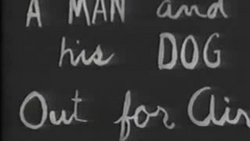 A MAN and
his DOG
Out for Air